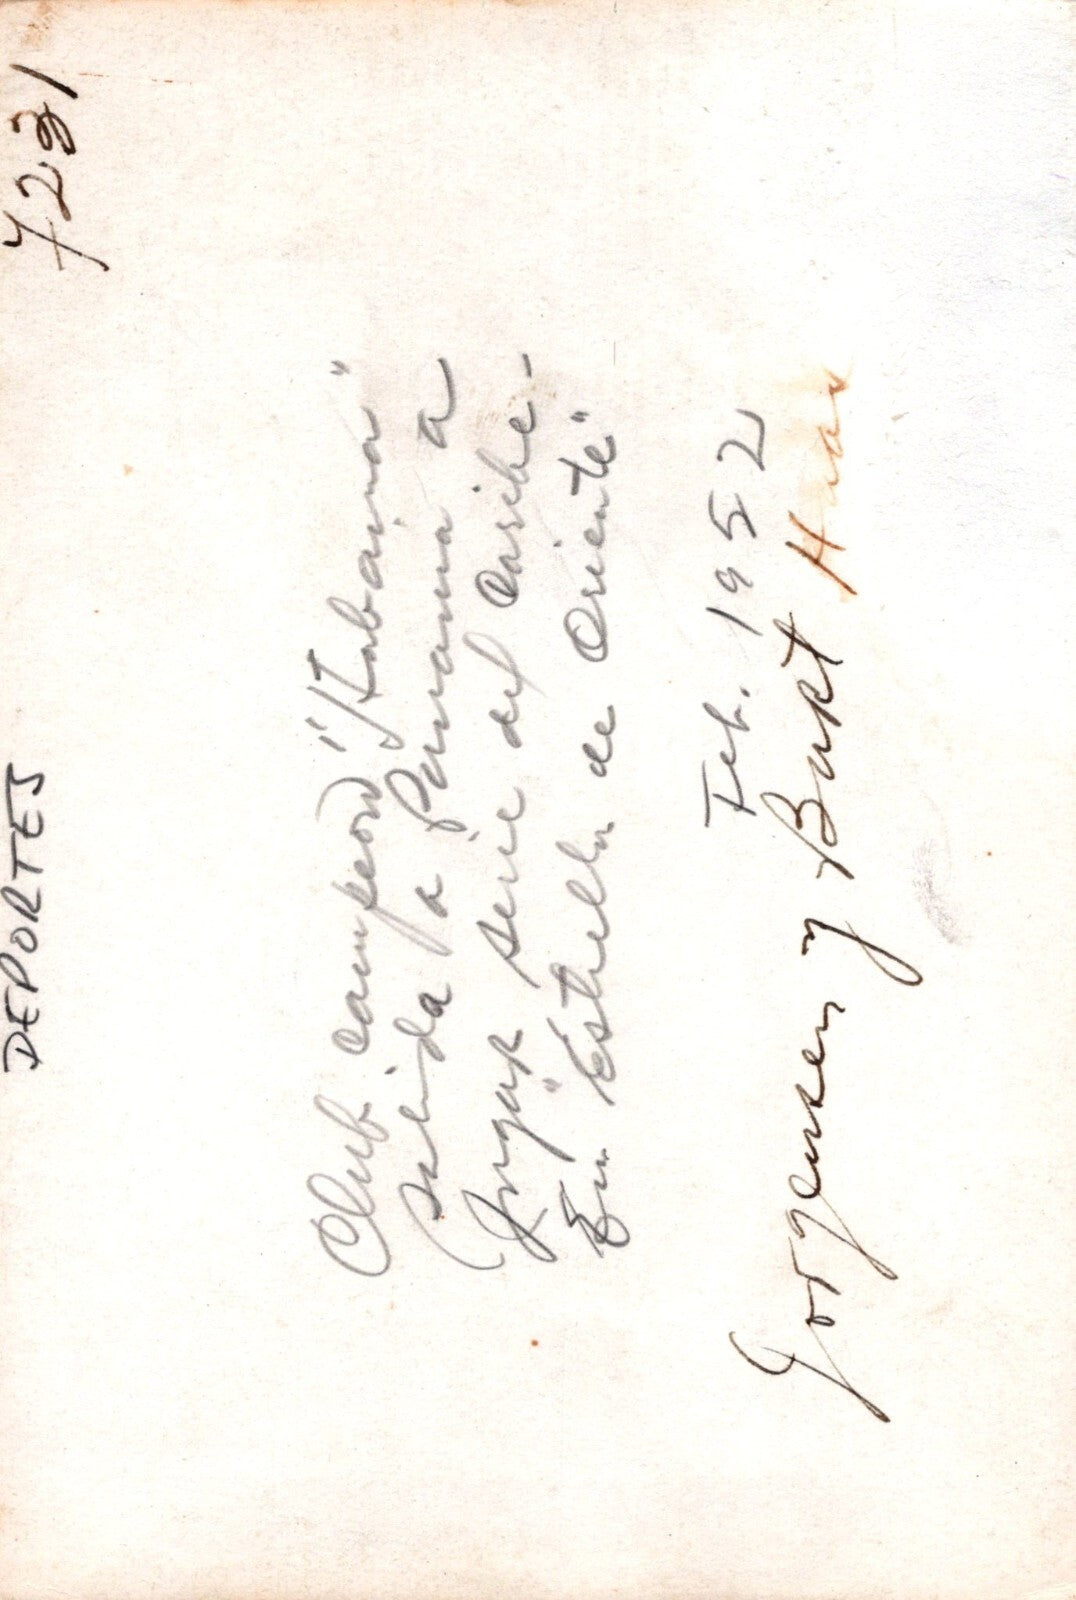 DEPORTES
7231
Club campeon "Habana"
salida a Panama a
Jugar serie del Caribe-
En "Estrella de Oriente"
Feb. 1952
Jorgensen y Burt Haas